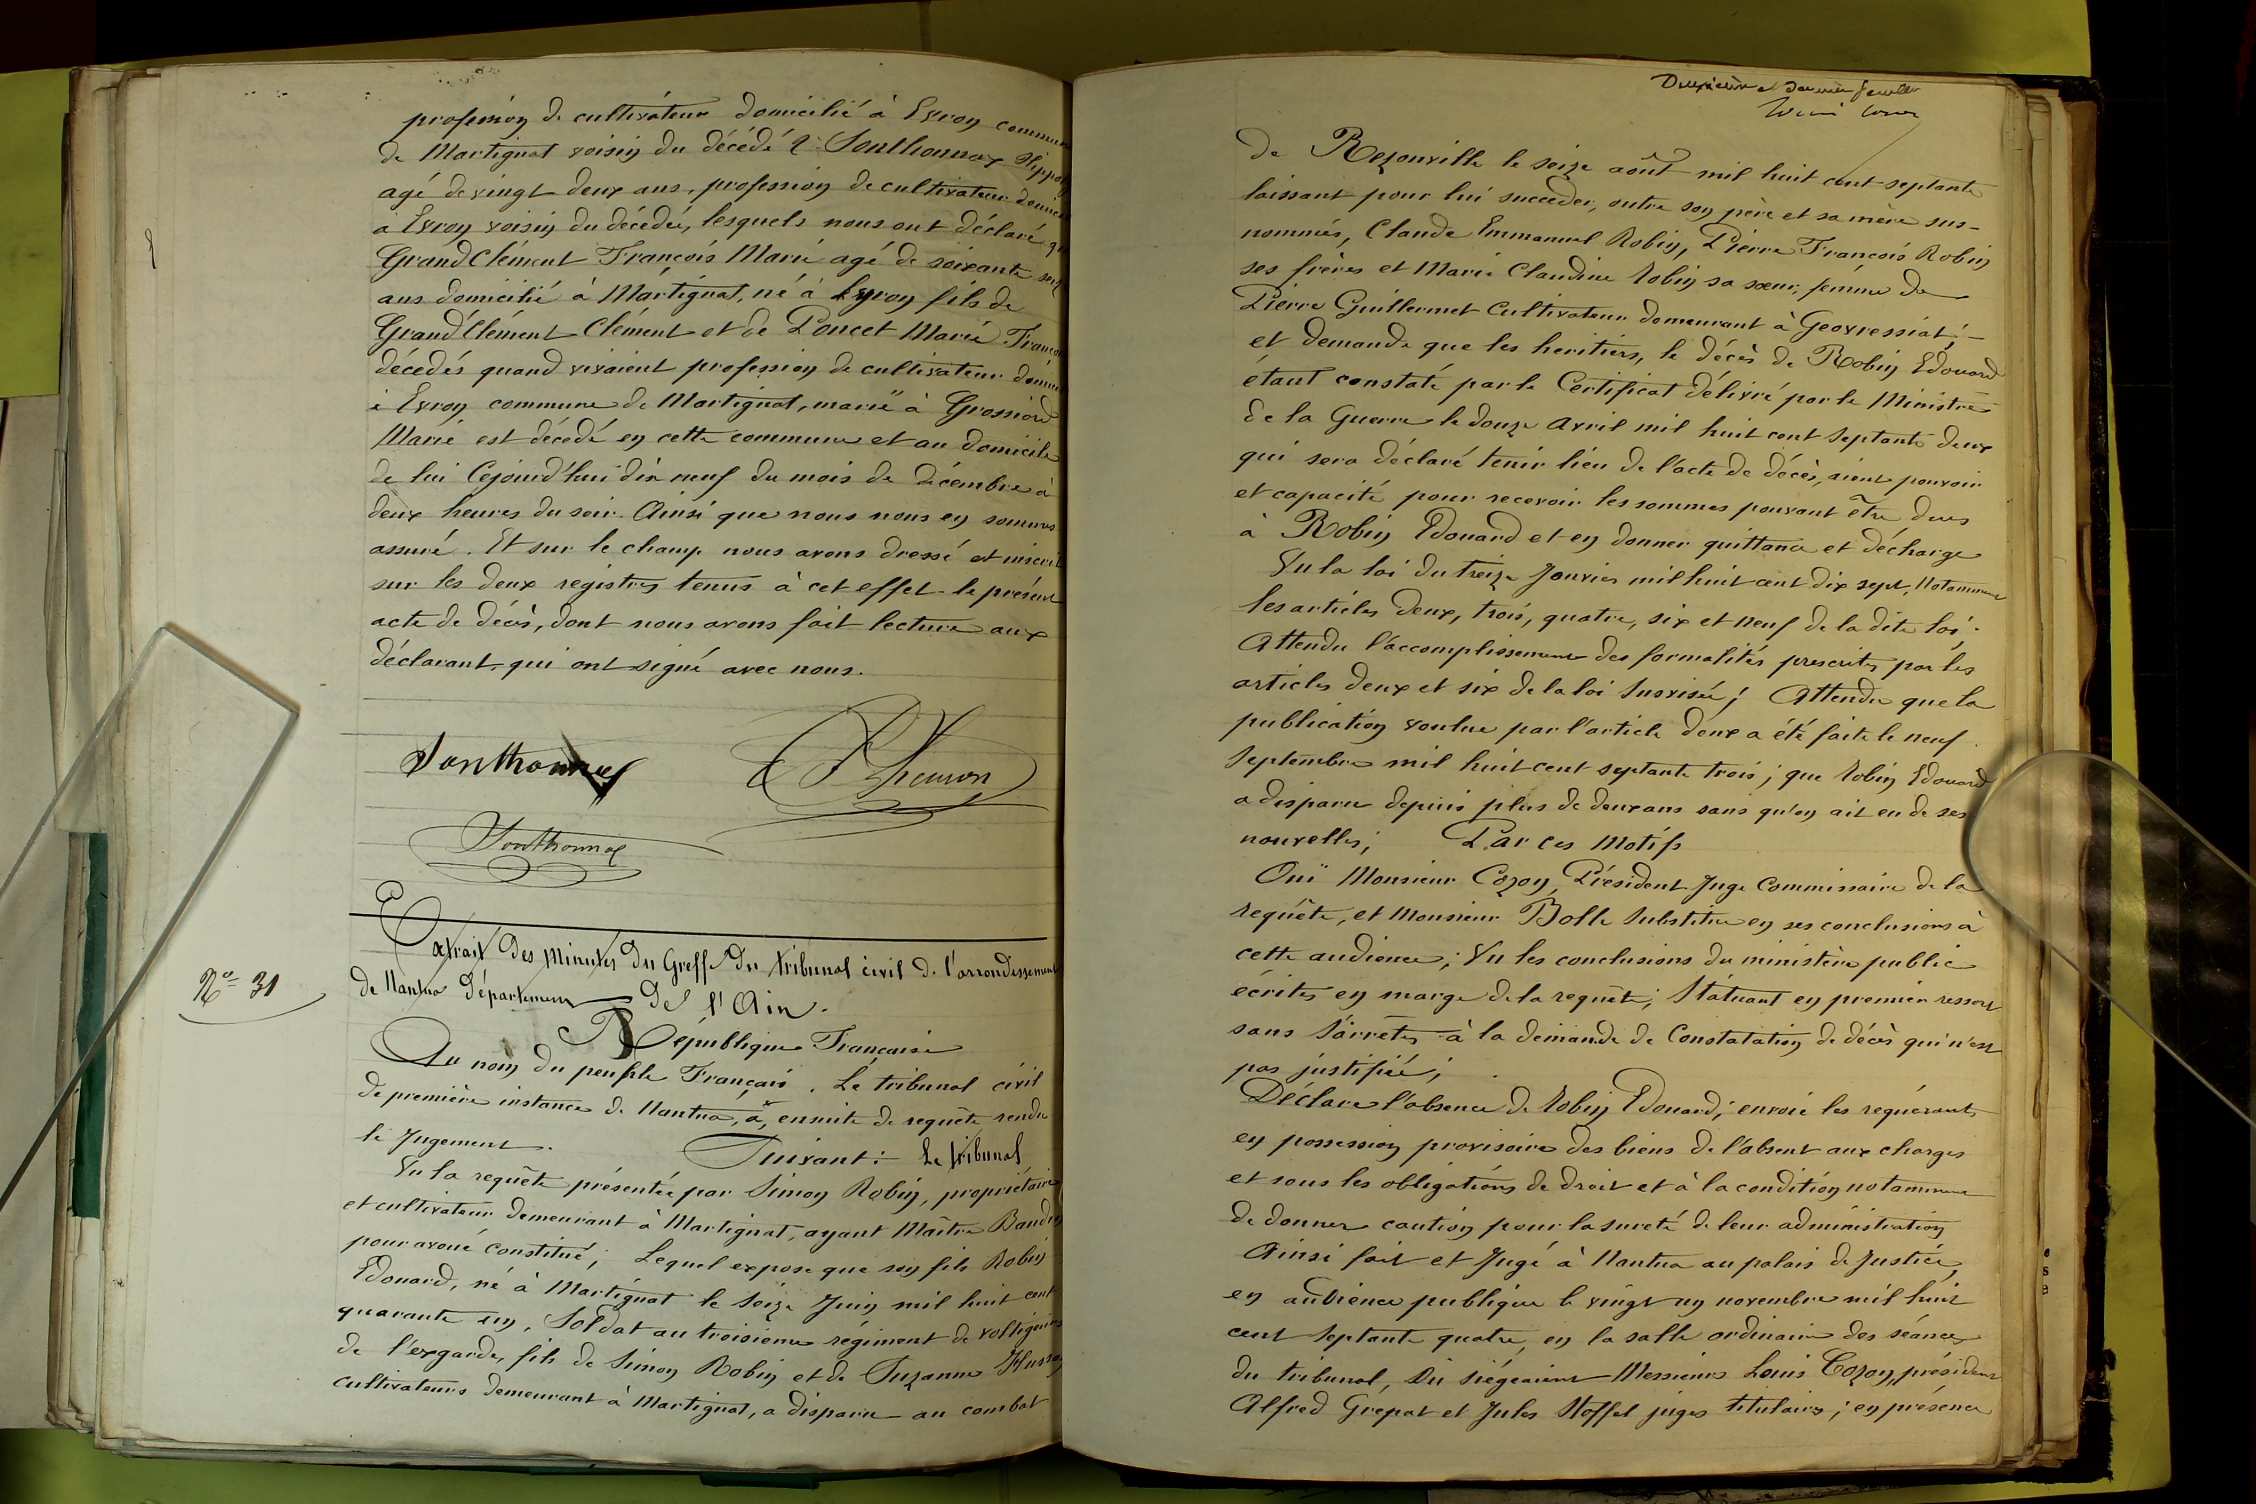 profession de cultivateur domicilié à Evron commune
de Martignat voisin du décédé 2° Sonthonnax Hippol
agé de vingt deux ans, profession de cultivateur domici
à Evron voisin du décédé, lesquels nous ont déclaré que
GrandClément François Marie agé de soixante sept
ans domicilié à Martignat, né à Evron fils de
GrandClément Clément et de Poncet Marie Françoi
décédés quand vivaient profession de cultivateur domici
à Evron commune de Martignat, marié à Grossiord
Marie est décédé en cette commune et au domicile
de lui Cejourd'hui dix neuf du mois de décembre à
deux heures du soir. Ainsi que nous nous en sommes
assuré. Et sur le champ nous avons dressé et inscrit
sur les deux registres tenus à cet effet le présent
acte de décès, dont nous avons fait lecture aux
déclarant qui ont signé avec nous.
Sonthonnax
Sonthonnax
N° 31
Extrait des Minutes du Greffe du tribunal civil de l'arrondissement
de Nantua Département de l'Ain.
République Française
Au nom du peuple Français. Le tribunal civil
de première instance de Nantua, a, ensuite de requête rendu
le Jugement. Suivant: Le tribunal
Vu la requête présentée par Simon Robin, propriétaire
et cultivateur demeurant à Martignat, ayant Maître Baudin
pour avoué constitué; Lequel expose que son fils Robin
Edouard, né à Martignat le seize Juin mil huit cent
quarante un, Soldat au troisième régiment de voltigeurs
de l'exgarde, fils de Simon Robin et de Suzanne Husson
cultivateurs demeurant à Martignat, a disparu au combat
Deuxième et dernier feuillet
de Rezonville le seize août mil huit cent septante
laissant pour lui succéder, outre son père et sa mère sus-
nommés, Claude Emmanuel Robin, Pierre François Robin
ses frères et Marie Claudine Robin sa sœur, femme de
Pierre Guillermet Cultivateur demeurant à Geovressiat; -
et demande que les heritiers, le décès de Robin Edouard
étant constaté par le Certificat délivré par le Ministre
de la Guerre le douze Avril mil huit cent septante deux
qui sera déclaré tenir lieu de l'acte de décès, aient pouvoir
et capacité pour recevoir les sommes pouvant être dues
à Robin Edouard et en donner quittance et décharge
Vu la loi du treize Janvier mil huit cent dix sept, Notamment
les articles deux, trois, quatre, six et neuf de la dite loi.
Attendu l'accomplissement des formalités prescrites par les
articles deux et six de la loi susvisée; Attendu que la
publication voulue par l'article deux a été faite le neuf
Septembre mil huit cent septante trois; que Robin Edouard
a disparu depuis plus de deux ans sans qu'on ait eu de ses
nouvelles; Par ces Motifs
Ouï Monsieur Cozon, Président Juge Commissaire de la
requête, et Monsieur Bolle Substitut en ses conclusions à
cette audience; Vu les conclusions du ministère public
écrites en marge de la requête; Statuant en premier ressort
sans s'arrêter à la demande de Constatation de décès qui n'est
pas justifiée;
Déclare l'absence de Robin Edouard; envoie les requérants
en possession provisoire des biens de l'absent aux charges
et sous les obligations de droit et à la condition notamment
de donner caution pour la sureté de leur administration
Ainsi fait et Jugé à Nantua au palais de Justice,
en audience publique le vingt un novembre mil huit
cent septante quatre, en la salle ordinaire des séances
du tribunal, Où siégeaient Messieurs Louis Cozon, président
Alfred Grepat et Jules Stoffel juges titulaires; en présence